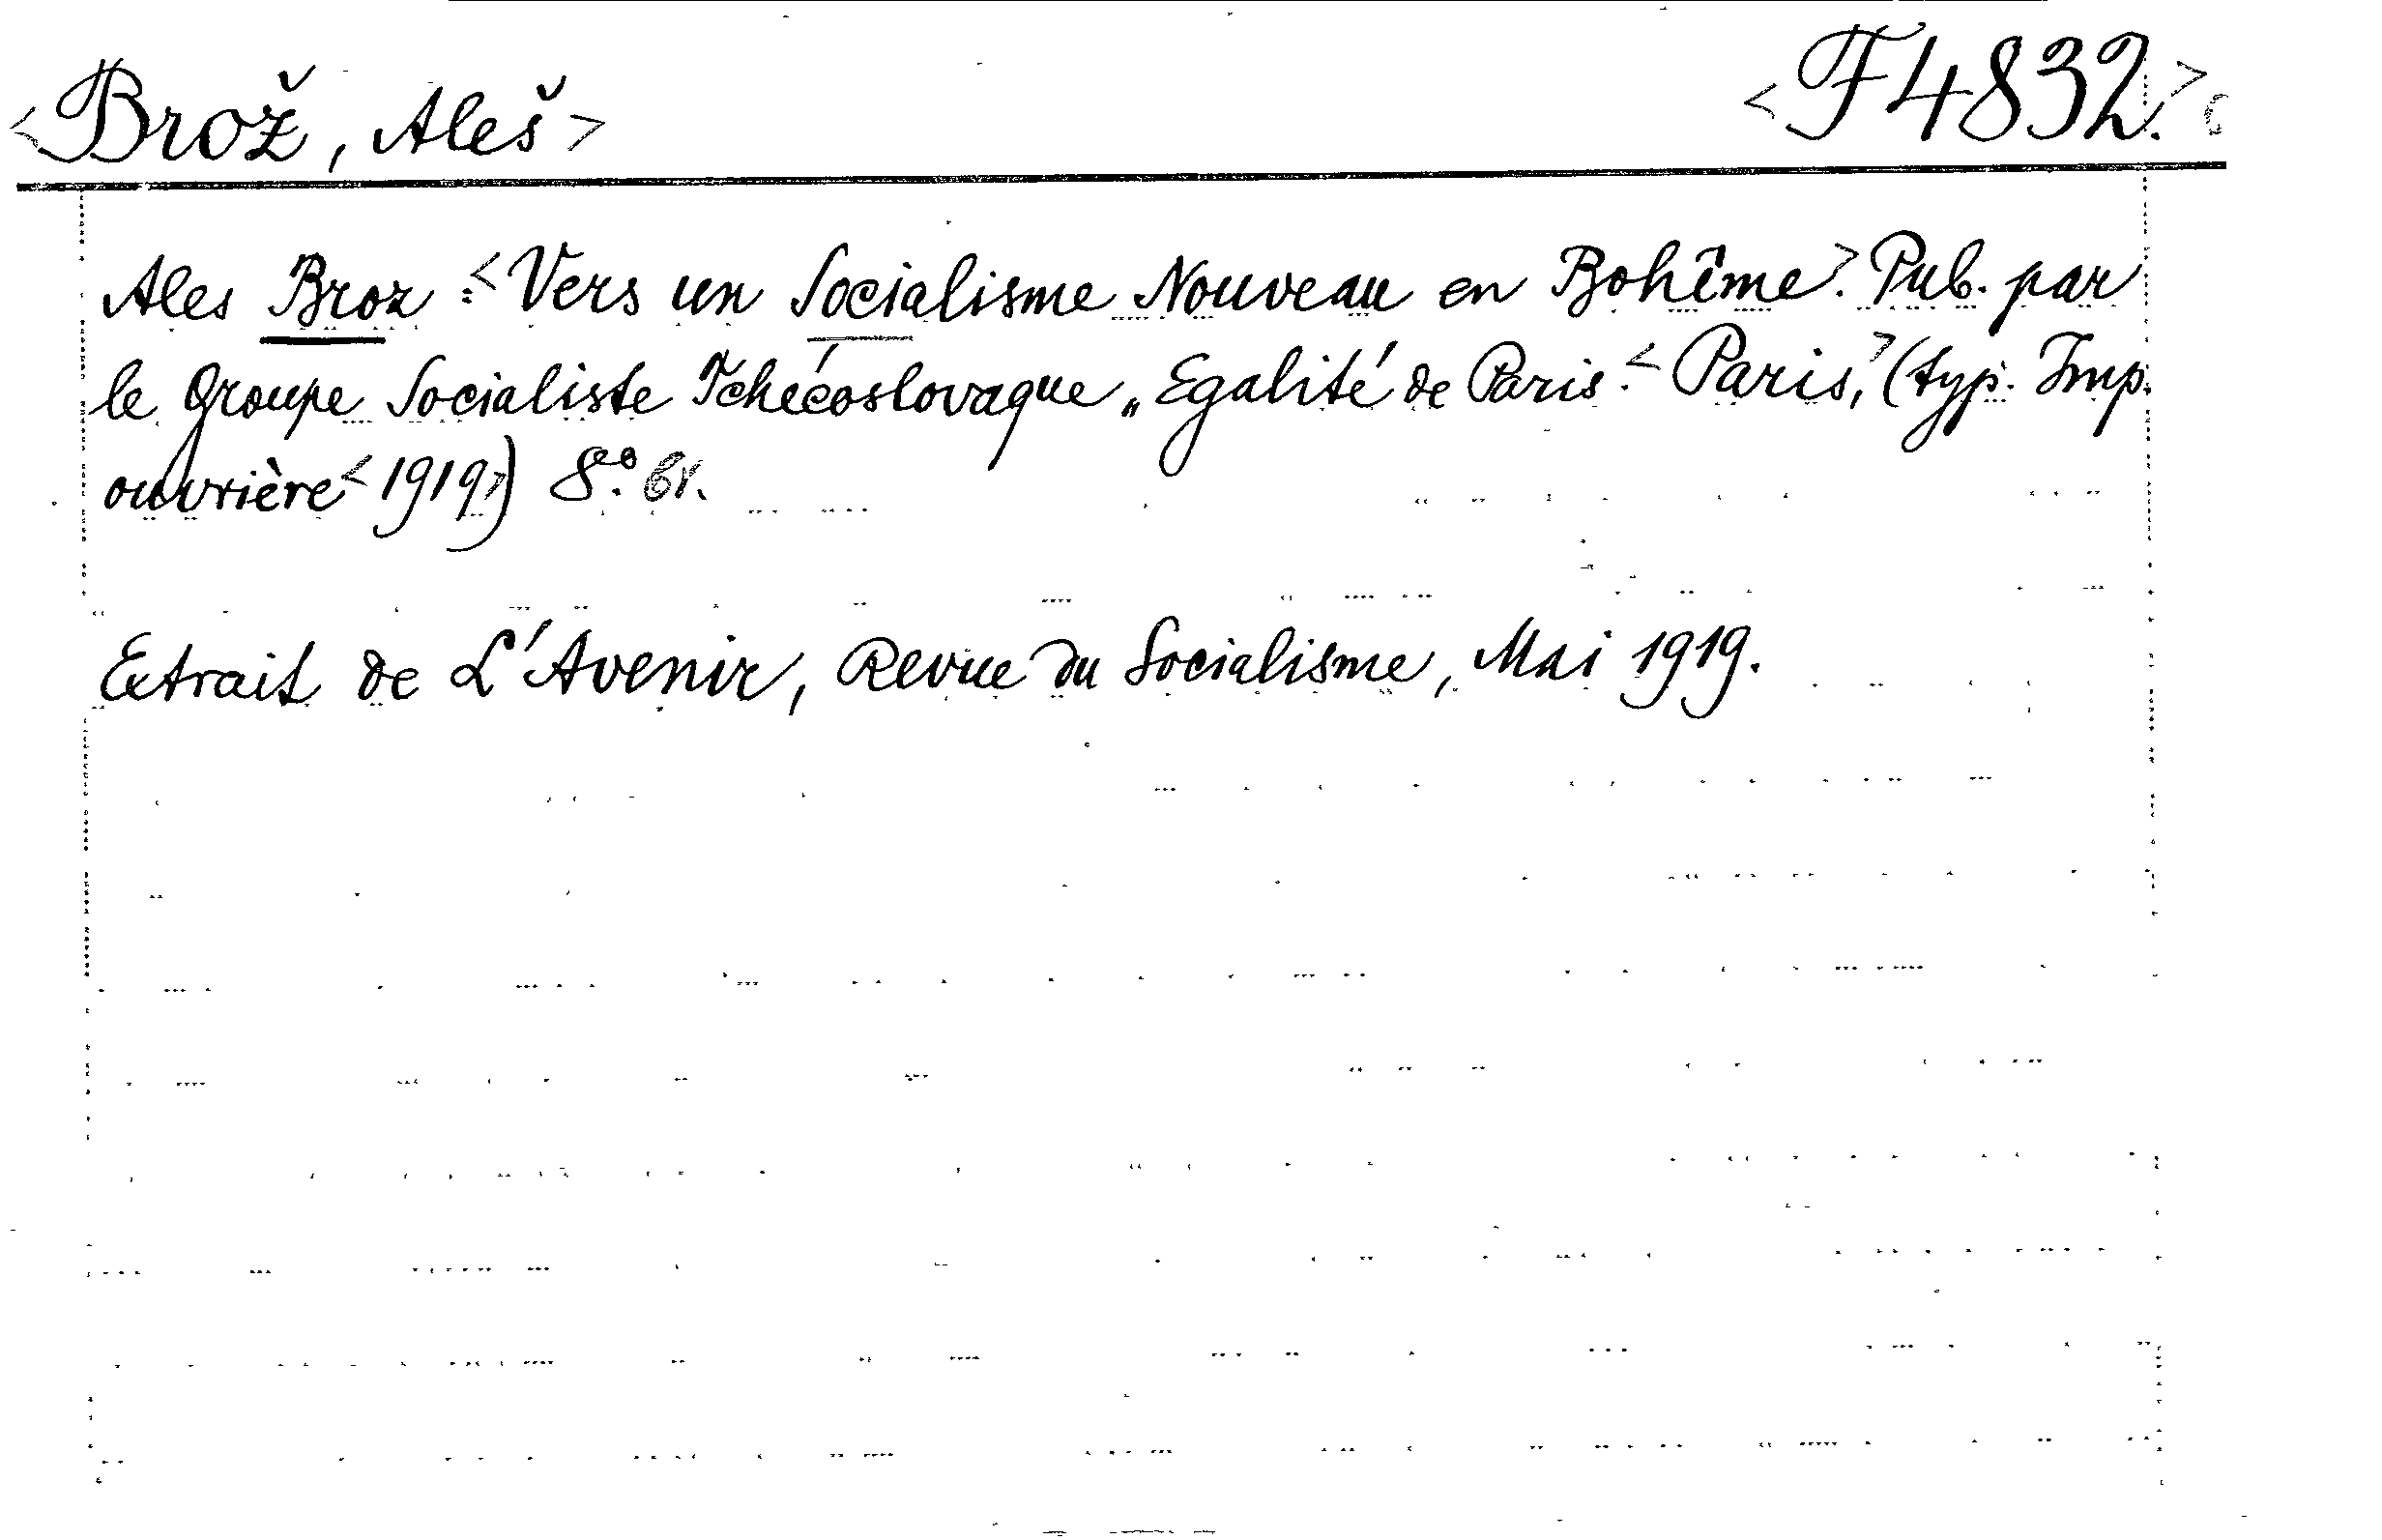 <Brož, Aleš> <F 4832.>
Ales Broz : <Vers un Socialisme Nouveau en Bohême.> Pub. par
le Groupe Socialiste Tchécoslovaque „Egalité de Paris. <Paris,> (typ. Imp.
ouvrière <1919>) 8°. br.
Extrait de L'Avenir, Revue du Socialisme, Mai 1919.